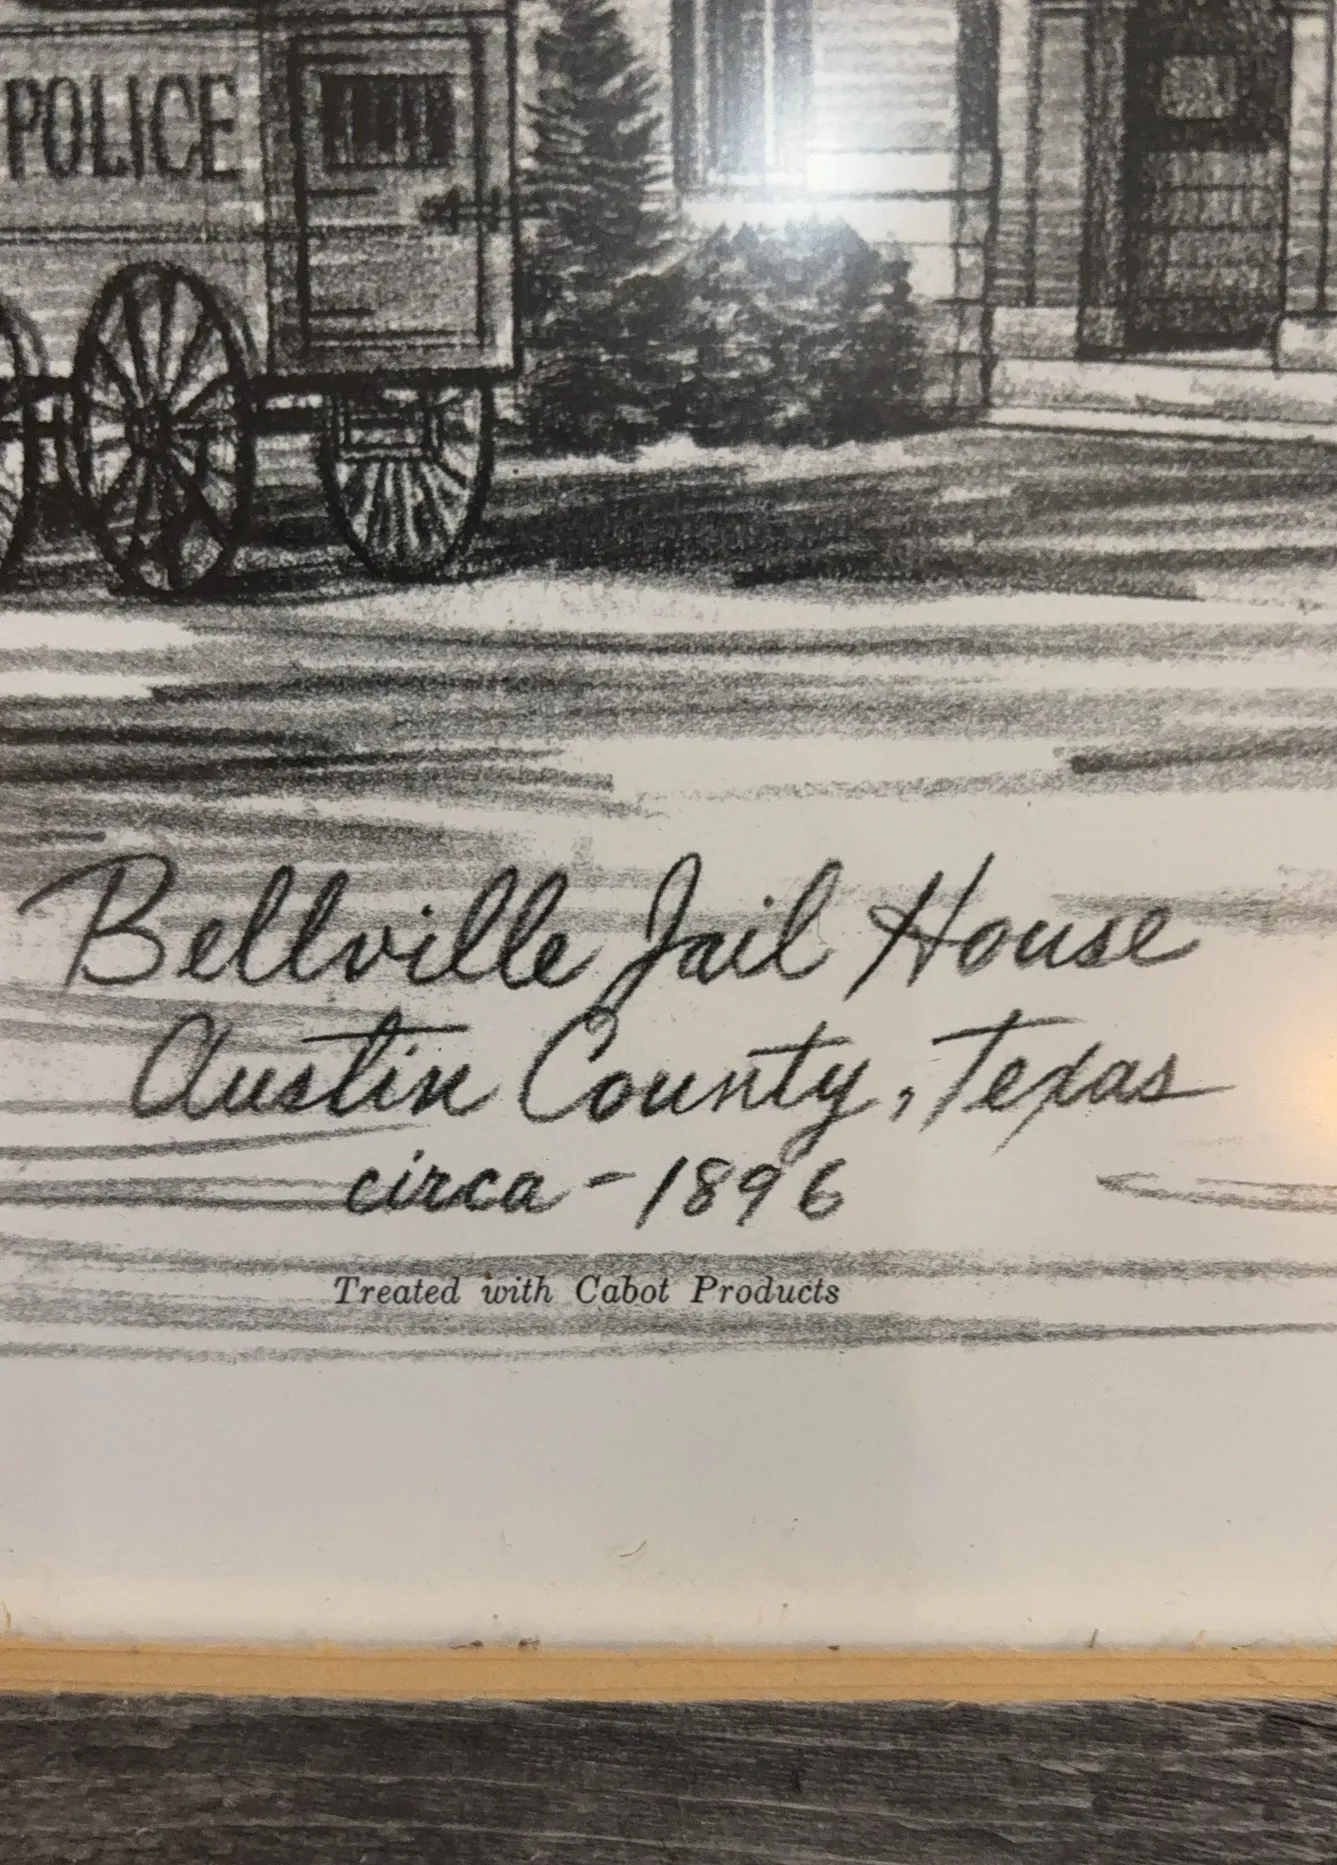 POLICE
Bellville Jail House
Austin County, Texas
circa - 1896
Treated with Cabot Products